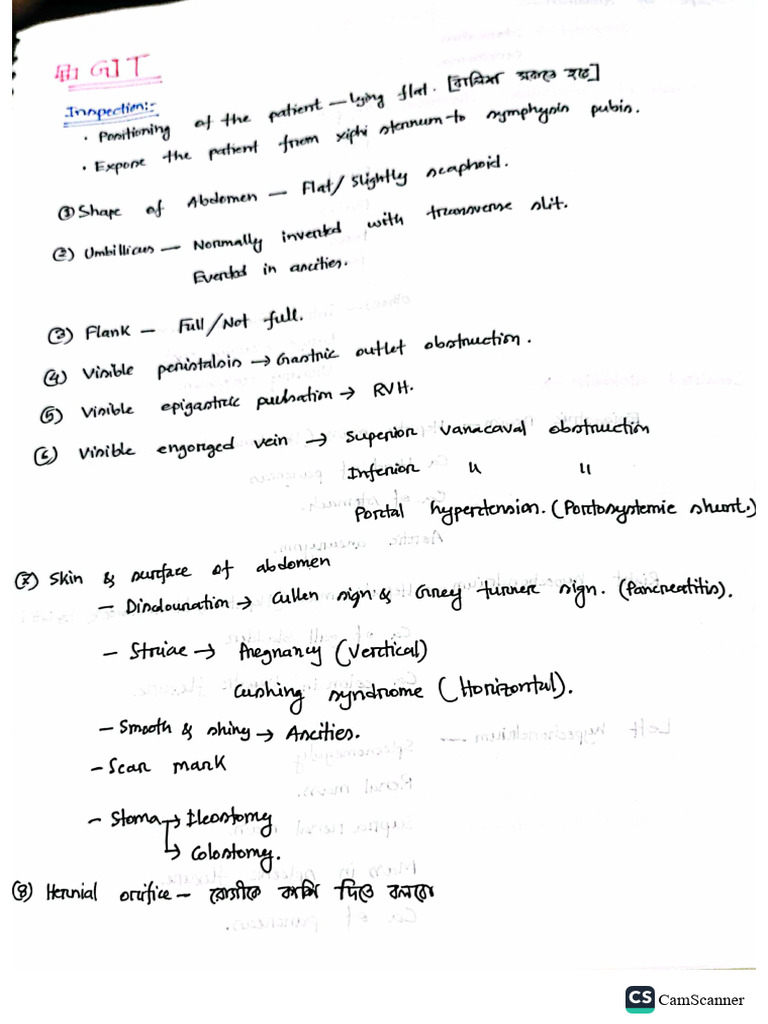 GIT
Inspection:-
· Positioning of the patient — lying flat. [বালিশ সরাতে হবে]
· Expose the patient from xiphi sternum to symphysis pubis.
① Shape of Abdomen — Flat/ Slightly scaphoid.
② Umbillicus — Normally invented with transverse slit.
Evented in ascities.
③ Flank — Full/Not full.
④ Visible peristalsis → Gastric outlet obstruction.
⑤ Visible epigastric pulsation → RVH.
⑥ Visible engorged vein → Superior vanacaval obstruction
Inferior " "
Portal hypertension. (Portosystemic shunt.)
⑦ Skin & surface of abdomen
— Discolouration → Cullen sign & Grey turner sign. (Pancreatitis).
— Striae → Pregnancy (Vertical)
Cushing syndrome (Horizontal).
— Smooth & shiny → Ascities.
— Scar mark
— Stoma → Ileostomy
→ Colostomy.
⑧ Hernial orifice — রোগীকে কাশি দিতে বলবো
CS CamScanner